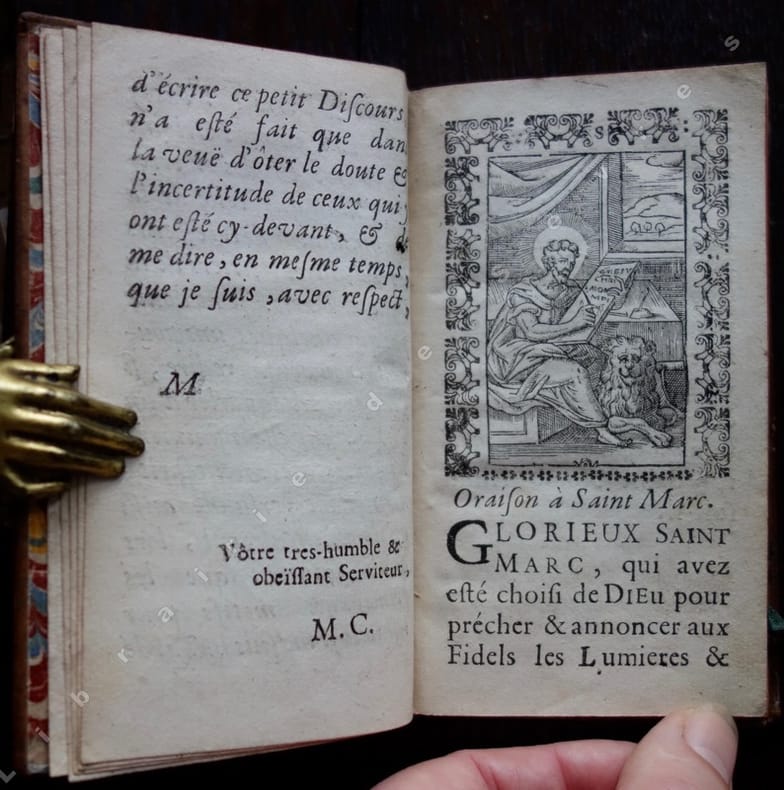 d'écrire ce petit Diſcours
n'a eſté fait que dan
la veuë d'ôter le doute &
l'incertitude de ceux qui y
ont eſté cy-devant, & de
me dire, en meſme temps,
que je ſuis, avec reſpect,
M
Vôtre tres-humble &
obeïſſant Serviteur,
M. C.
Oraiſon à Saint Marc.
GLORIEUX SAINT
MARC, qui avez
eſté choiſi de DIEU pour
précher & annoncer aux
Fidels les Lumieres &
Librairie de